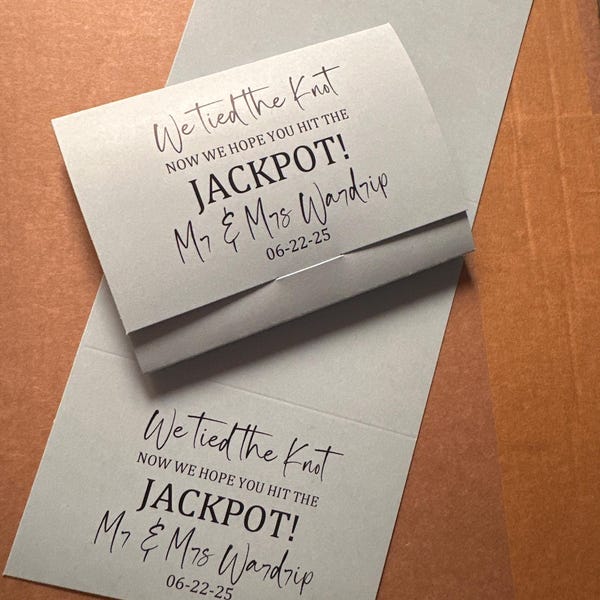 We tied the Knot
NOW WE HOPE YOU HIT THE
JACKPOT!
Mr & Mrs Wardrip
06-22-25
We tied the Knot
NOW WE HOPE YOU HIT THE
JACKPOT!
Mr & Mrs Wardrip
06-22-25